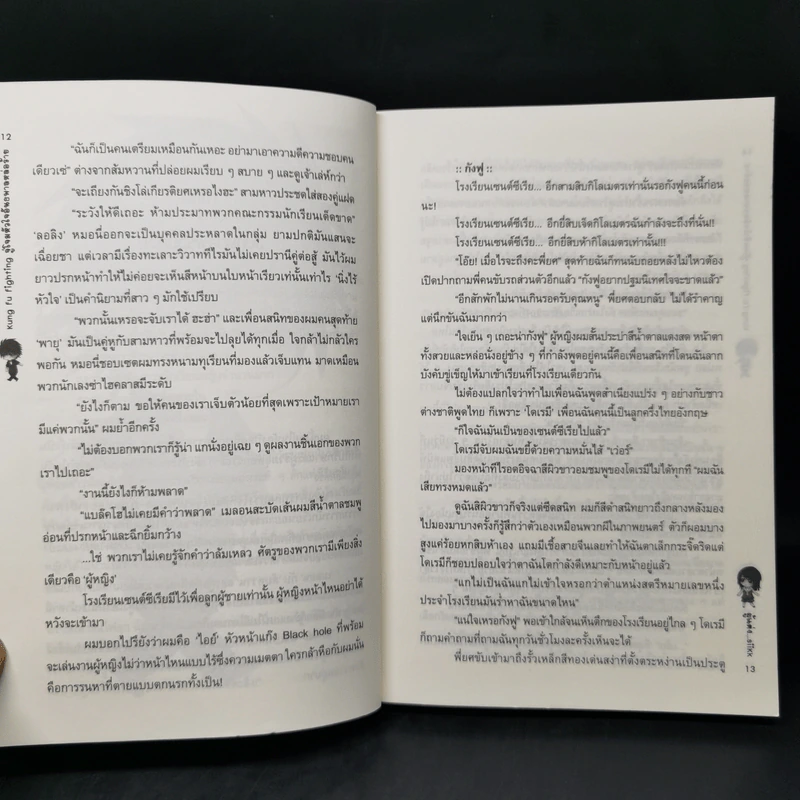 12
Kung fu fighting
"ฉันก็เป็นคนเตรียมเหมือนกันเหอะ อย่ามาเอาความดีความชอบคน
เดียวเซ่" ต่างจากส้มหวานที่ปล่อยผมเรียบ ๆ สบาย ๆ และดูเจ้าเล่ห์กว่า
"จะเถียงกันชิงโล่เกียรติยศเหรอไงฮะ" สามหาวประชดใส่สองคู่แฝด
"ระวังให้ดีเถอะ ห้ามประมาทพวกคณะกรรมนักเรียนเด็ดขาด"
'ลอลิง' หมอนี่ออกจะเป็นบุคคลประหลาดในกลุ่ม ยามปกติมันแสนจะ
เฉื่อยชา แต่เวลามีเรื่องทะเลาะวิวาททีไรมันไม่เคยปรานีคู่ต่อสู้ มันไว้ผม
ยาวปรกหน้าทำให้ไม่ค่อยจะเห็นสีหน้าบนใบหน้าเรียวเท่านั้นเท่าไร 'นิ่งไร้
หัวใจ' เป็นคำนิยามที่สาว ๆ มักใช้เปรียบ
"พวกนั้นเหรอจะจับเราได้ ฮะฮ่า" และเพื่อนสนิทของผมคนสุดท้าย
'พายุ' มันเป็นคู่หูกับสามหาวที่พร้อมจะไปลุยได้ทุกเมื่อ ใจกล้าไม่กลัวใคร
พอกัน หมอนี่ชอบเซตผมทรงหนามทุเรียนที่มองแล้วเจ็บแทน มาดเหมือน
พวกนักเลงซ่าไฮคลาสมีระดับ
"ยังไงก็ตาม ขอให้คนของเราเจ็บตัวน้อยที่สุดเพราะเป้าหมายเรา
มีแค่พวกนั้น" ผมย้ำอีกครั้ง
"ไม่ต้องบอกพวกเราก็รู้น่า แกนั่งอยู่เฉย ๆ ดูผลงานชิ้นเอกของพวก
เราไปเถอะ"
"งานนี้ยังไงก็ห้ามพลาด"
"แบล็คโฮไม่เคยมีคำว่าพลาด" เมลอนสะบัดเส้นผมสีน้ำตาลชมพู
อ่อนที่ปรกหน้าและฉีกยิ้มกว้าง
...ใช่ พวกเราไม่เคยรู้จักคำว่าล้มเหลว ศัตรูของพวกเรามีเพียงสิ่ง
เดียวคือ 'ผู้หญิง'
โรงเรียนเซนต์ซีเรียมีไว้เพื่อลูกผู้ชายเท่านั้น ผู้หญิงหน้าไหนอย่าได้
หวังจะเข้ามา
ผมบอกไปรึยังว่าผมคือ 'ไอย์' หัวหน้าแก๊ง Black hole ที่พร้อม
จะเล่นงานผู้หญิงไม่ว่าหน้าไหนแบบไร้ซึ่งความเมตตา ใครกล้าหือกับผมนั่น
คือการรนหาที่ตายแบบตกนรกทั้งเป็น!
:: กังฟู ::
โรงเรียนเซนต์ซีเรีย... อีกสามสิบกิโลเมตรเท่านั้นรอกังฟูคนนี้ก่อน
นะ!
โรงเรียนเซนต์ซีเรีย... อีกยี่สิบเจ็ดกิโลเมตรฉันกำลังจะถึงที่นั่น!!
โรงเรียนเซนต์ซีเรีย... อีกยี่สิบห้ากิโลเมตรเท่านั้น!!!
"โอ๊ย! เมื่อไรจะถึงคะพี่ยศ" สุดท้ายฉันก็ทนนับถอยหลังไม่ไหวต้อง
เปิดปากถามพี่คนขับรถส่วนตัวอีกแล้ว "กังฟูอยากปฐมนิเทศใจจะขาดแล้ว"
"อีกสักพักไม่นานเกินรอครับคุณหนู" พี่ยศตอบกลับ ไม่ได้รำคาญ
แต่นึกขันฉันมากกว่า
"ใจเย็น ๆ เถอะน่ากังฟู" ผู้หญิงผมสั้นประบ่าสีน้ำตาลแดงสด หน้าตา
ทั้งสวยและหล่อนั่งอยู่ข้าง ๆ ที่กำลังพูดอยู่คนนี้คือเพื่อนสนิทที่โดนฉันลาก
บังคับขู่เข็ญให้มาเข้าเรียนที่โรงเรียนเดียวกัน
ไม่ต้องแปลกใจว่าทำไมเพื่อนฉันพูดสำเนียงแปร่ง ๆ อย่างกับชาว
ต่างชาติพูดไทย ก็เพราะ 'โดเรมี' เพื่อนฉันคนนี้เป็นลูกครึ่งไทยอังกฤษ
"ก็ใจฉันมันเป็นของเซนต์ซีเรียไปแล้ว"
โดเรมีจับผมฉันขยี้ด้วยความหมั่นไส้ "เว่อร์"
มองหน้าที่ไรอดอิจฉาสีผิวขาวอมชมพูของโดเรมีไม่ได้ทุกที "ผมฉัน
เสียทรงหมดแล้ว"
ดูฉันสีผิวขาวก็จริงแต่ซีดสนิท ผมก็สีดำสนิทยาวถึงกลางหลังมอง
ไปมองมาบางครั้งก็รู้สึกว่าตัวเองเหมือนพวกผีในภาพยนตร์ ตัวก็ผอมบาง
สูงแค่ร้อยหกสิบห้าเอง แถมมีเชื้อสายจีนเลยทำให้ฉันตาเล็กกระจิ๊ดริดแต่
โดเรมีก็ชอบปลอบใจว่าตาฉันโตกำลังดีเหมาะกับหน้าอยู่แล้ว
"แกไม่เป็นฉันแกไม่เข้าใจหรอกว่าตำแหน่งสตรีหมายเลขหนึ่ง
ประจำโรงเรียนมันร่ำหาฉันขนาดไหน"
"แน่ใจเหรอกังฟู" พอเข้าใกล้จนเห็นตึกของโรงเรียนอยู่ไกล ๆ โดเรมี
ก็ถามคำถามที่ถามฉันทุกวันชั่วโมงละครั้งเห็นจะได้
พี่ยศขับเข้ามาถึงรั้วเหล็กสีทองเด่นสง่าที่ตั้งตระหง่านเป็นประตู
13